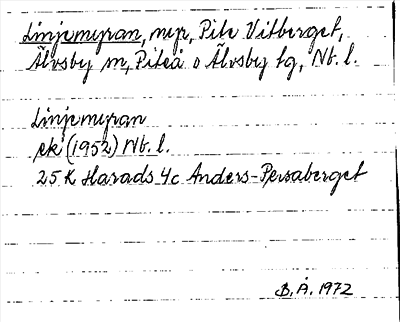 Linjemyran, myr, Pite Vitberget,
Älvsby sn, Piteå o Älvsby tg, Nb. l.
Linjemyran
ek (1952) Nb. l.
25 K Harads 4c Anders-Persaberget
B. Å. 1972